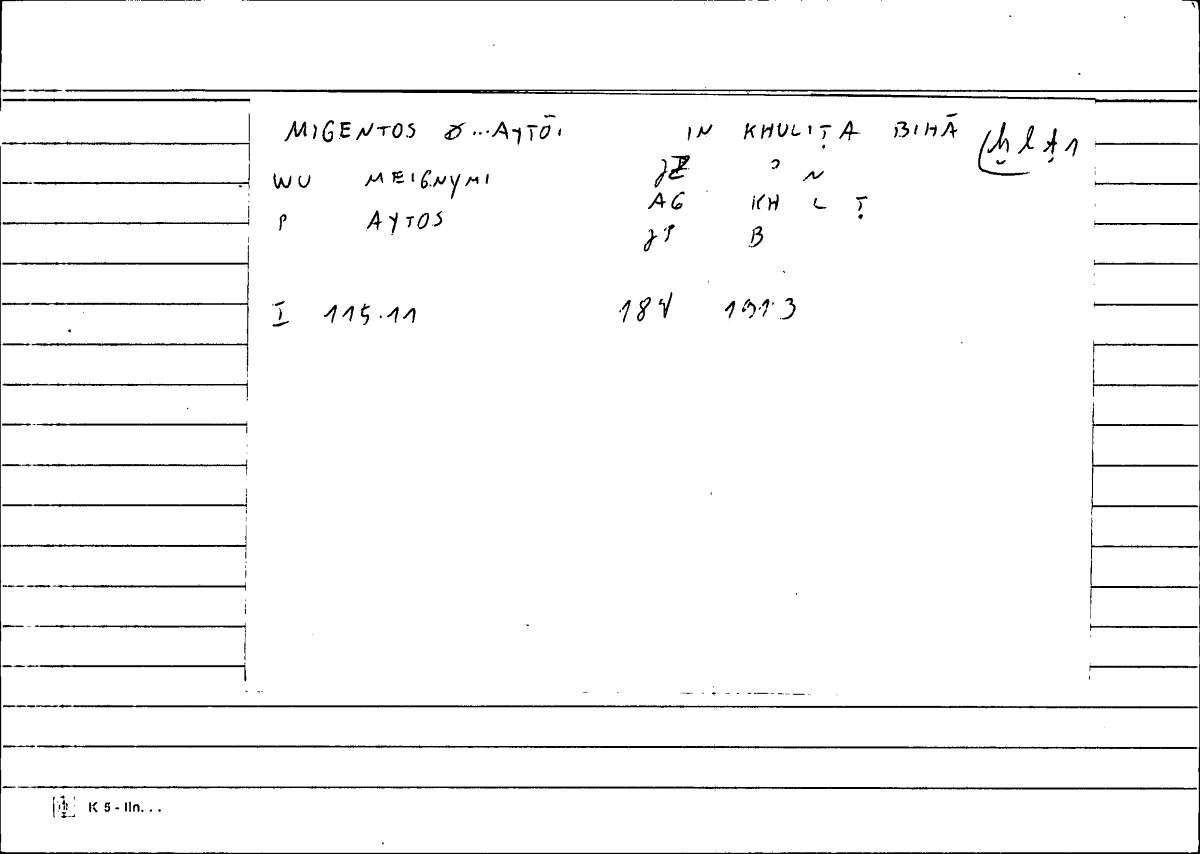 MIGENTOS ... AYTŌI IN KHULIṬA BIHĀ ḫlṭ1
WU MEIGNYMI N
P AYTOS AG KH L Ṭ
B
I 115.11 184 191.3
K 5 - IIn. . .